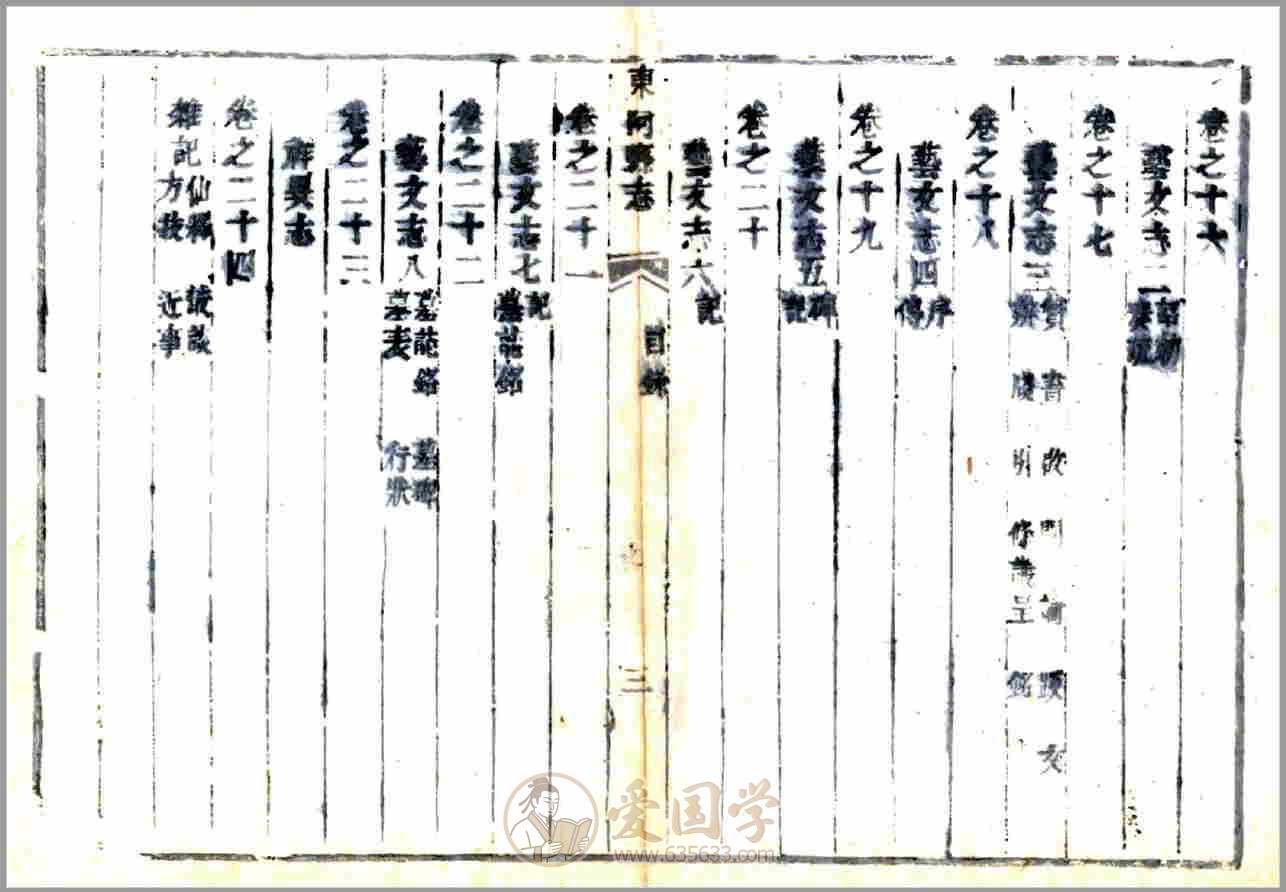 卷之十六
藝文志二 詔勅 奏疏
卷之十七
藝文志三 書 啟 問 跋 文 辨 牋 引 呈 銘
卷之十八
藝文志四 序 傳
卷之十九
藝文志五 碑 記
卷之二十
藝文志六 記
東阿縣志 目錄 三
卷之二十一
藝文志七 記 墓誌銘
卷之二十二
藝文志八 墓誌銘 墓碑 墓表 行狀
卷之二十三
祥異志
卷之二十四
雜記 仙釋 談 方技 近事
爱国学
www.635633.com